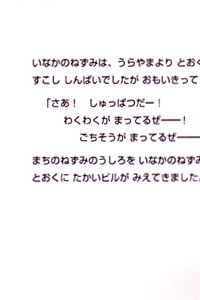 いなかのねずみは、うらやまより とおく
すこし しんぱいでしたが おもいきって
「さあ！ しゅっぱつだー！
わくわくが まってるぜ――！
ごちそうが まってるぜ――
まちのねずみのうしろを いなかのねずみ
とおくに たかいビルが みえてきました。